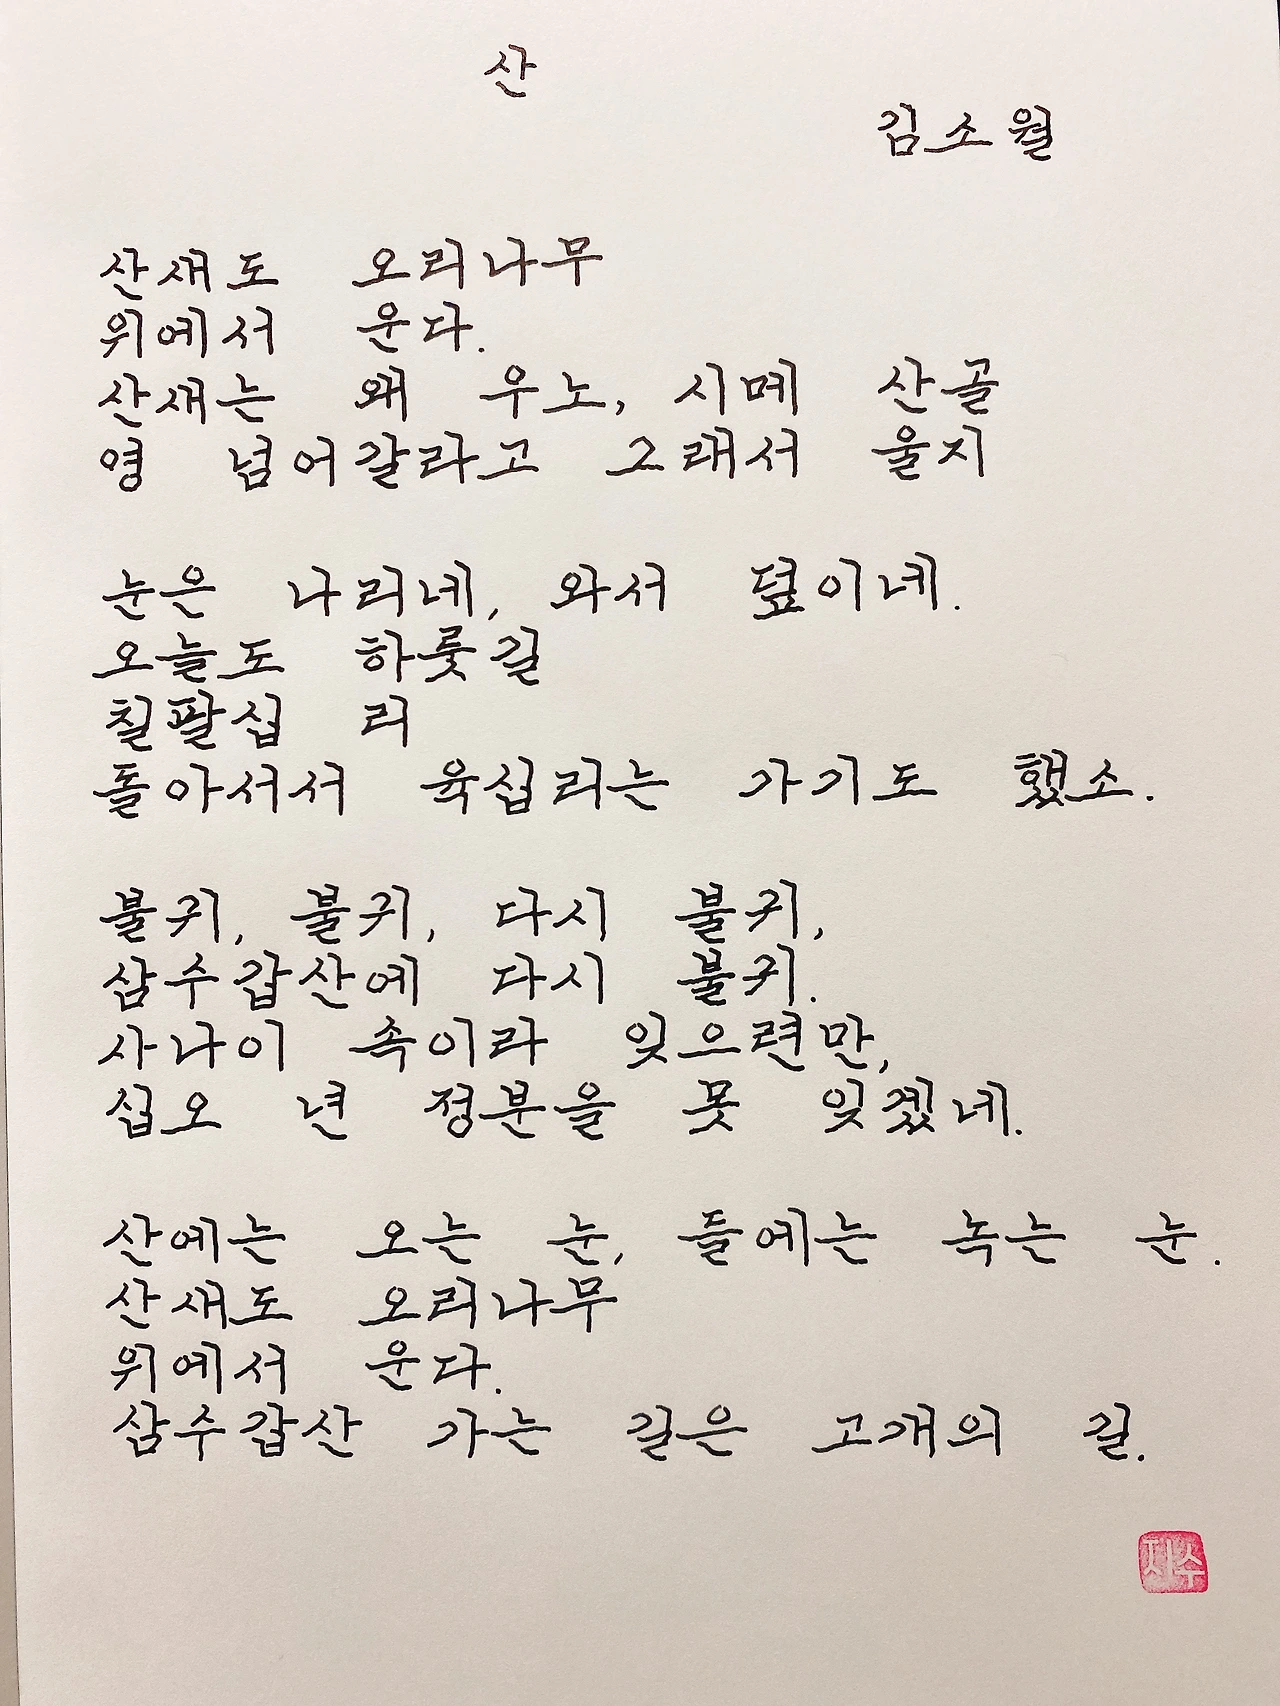 산
김소월
산새도 오리나무
위에서 운다.
산새는 왜 우노, 시메 산골
영 넘어갈라고 그래서 울지
눈은 나리네, 와서 덮이네.
오늘도 하룻길
칠팔십 리
돌아서서 육십리는 가기도 했소.
불귀, 불귀, 다시 불귀,
삼수갑산에 다시 불귀.
사나이 속이라 잊으련만,
십오 년 정분을 못 잊겠네.
산에는 오는 눈, 들에는 녹는 눈.
산새도 오리나무
위에서 운다.
삼수갑산 가는 길은 고개의 길.